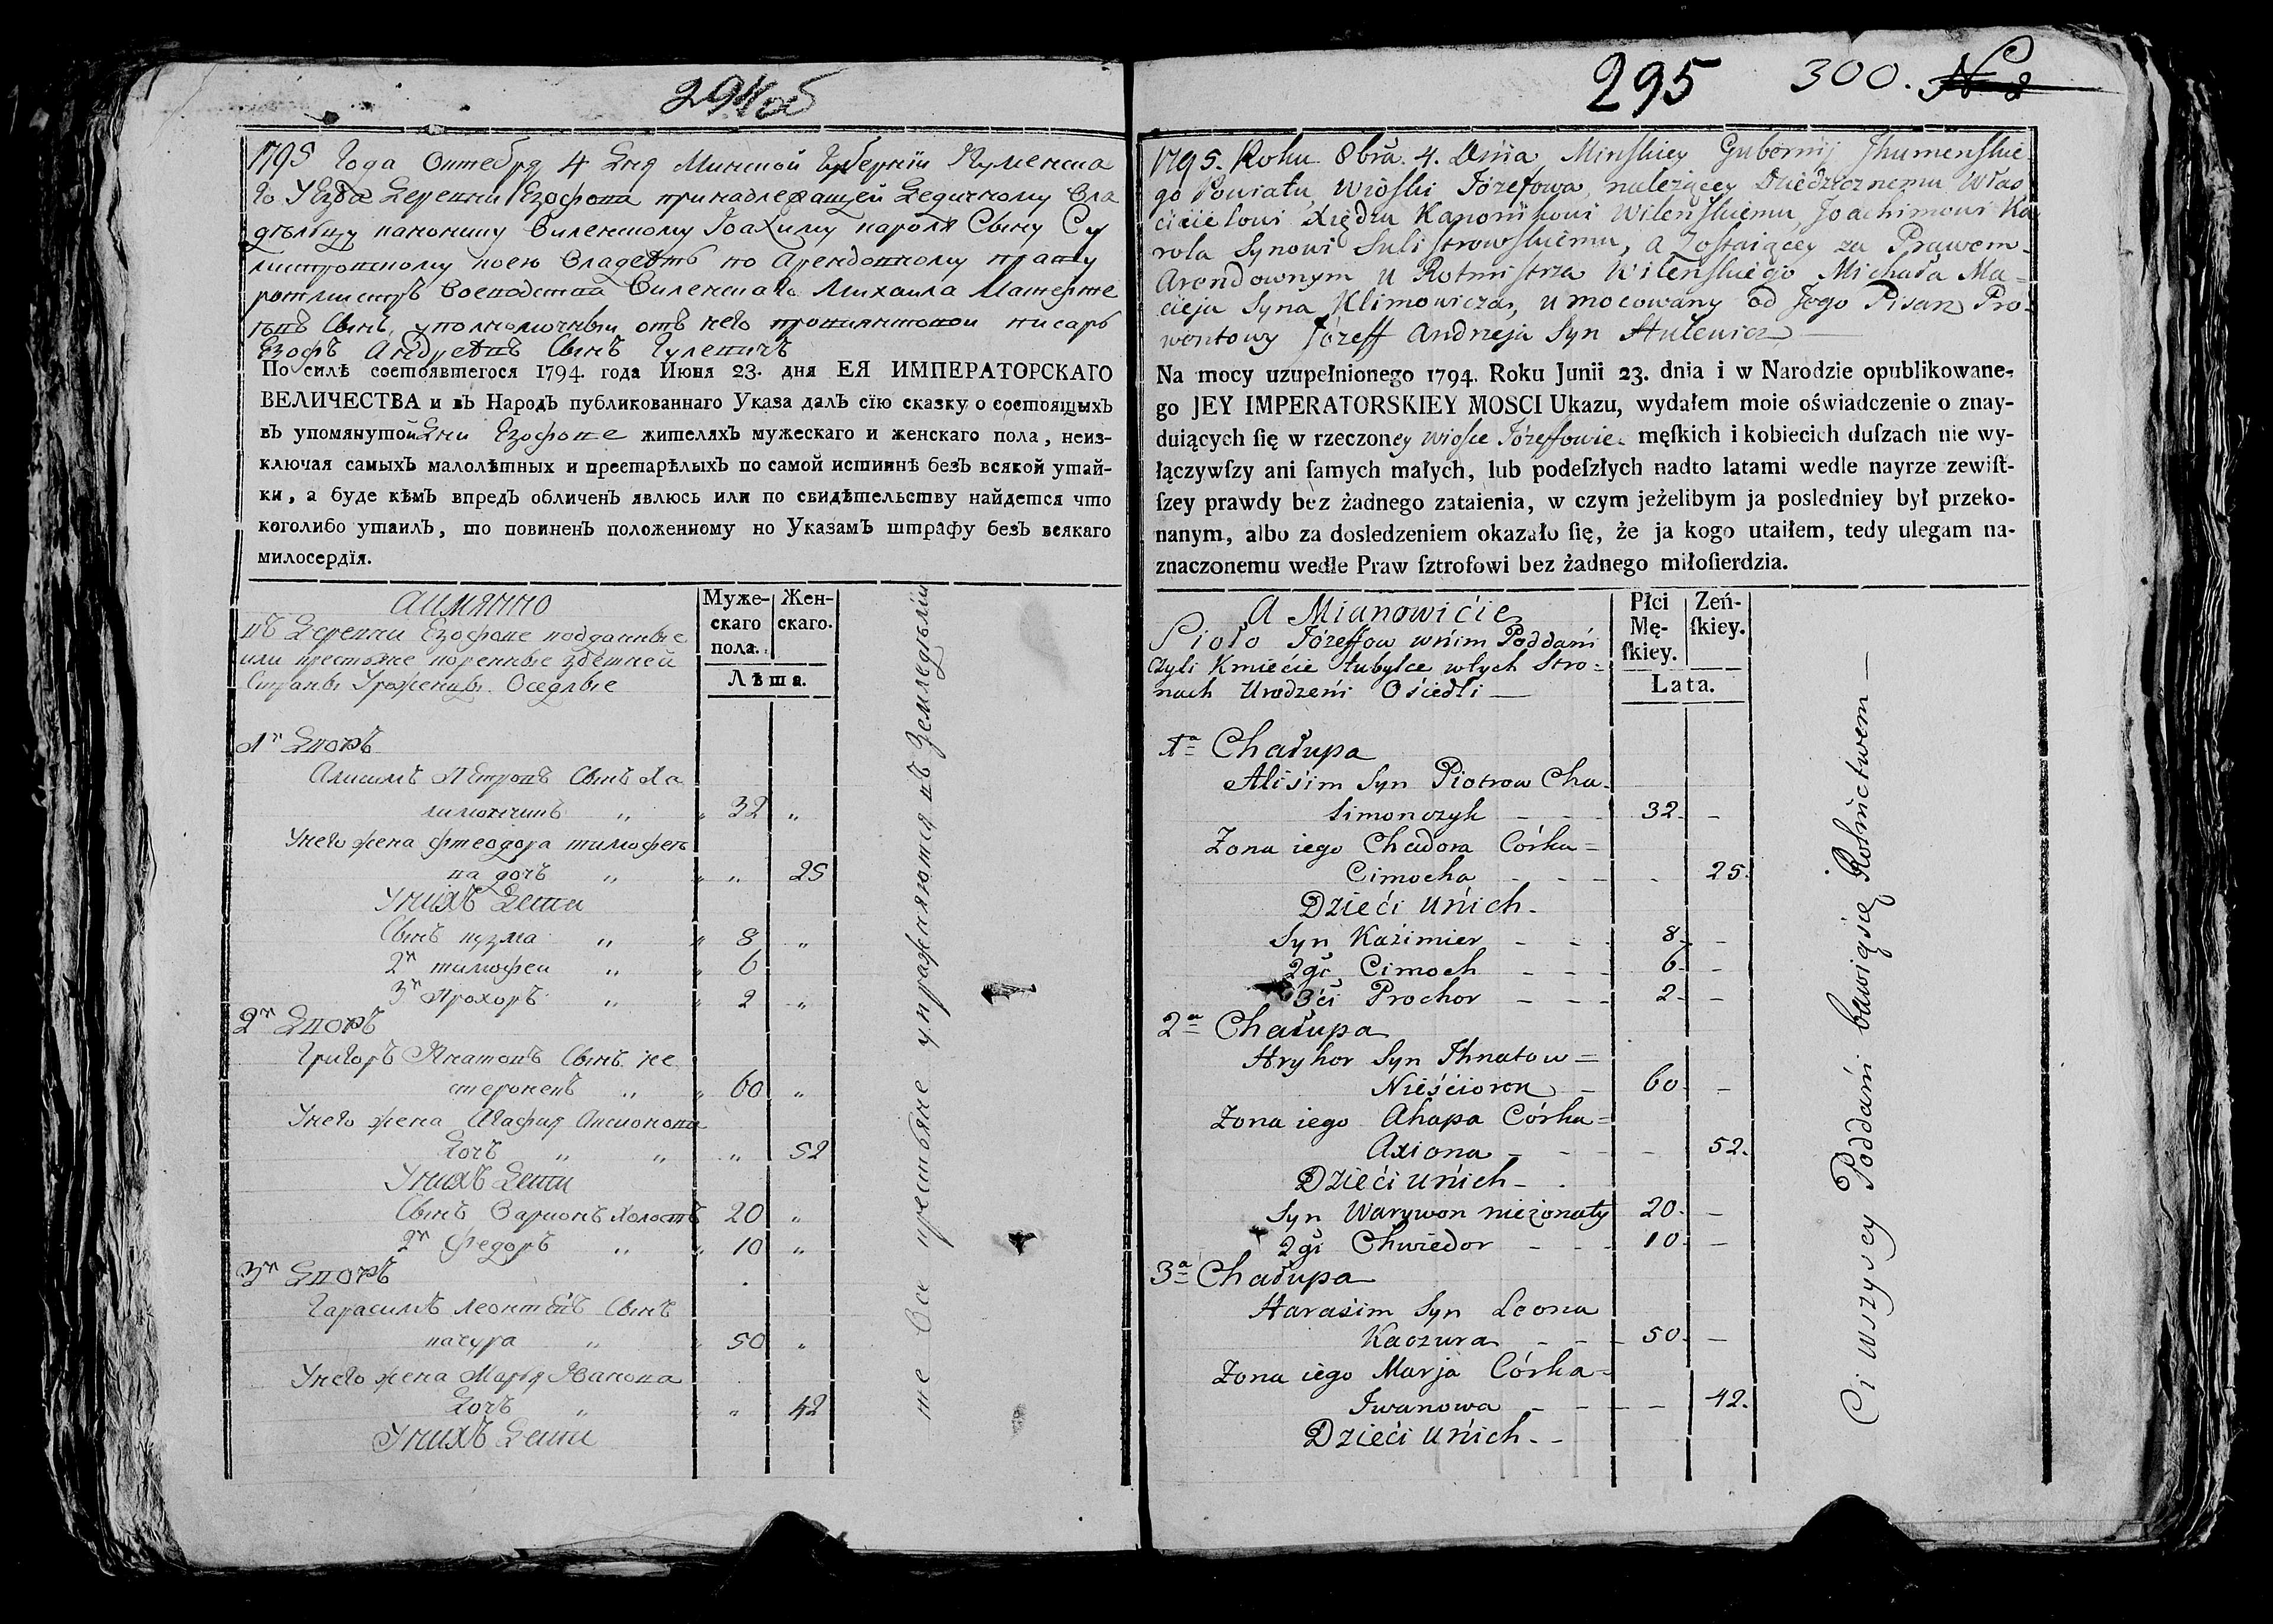 294об
1795 Года Октебря 4 Дня Минской Губернїи Игуменска
го Уезда Деревни Езофова принадлежащей Дедичному Вла
дѣльцу канонику Виленскому Іоахиму Кароля Сыну Су
листровскому коею Владеетъ по Арендовному праву
ротмистръ Воеводства Виленскаго Михаила Матерее
Сынъ, уполномочный отъ него провиянтовой писарь
Езофъ Андреевъ Сынъ Гулевичъ
По силѣ состоявтегося 1794. года Июня 23. дня ЕЯ ИМПЕРАТОРСКАГО
ВЕЛИЧЕСТВА и въ Народъ публикованнаго Указа далъ сїю сказку о состоящыхъ
въ упомянутой Дни Езофове жителяхъ мужескаго и женскаго пола, неиз-
ключая самыхъ малолѣтных и престарѣлыхъ по самой истиннѣ безъ всякой утай-
ки, а буде кѣмъ впредъ обличенъ явлюсь или по свидѣтельству найдется что
коголибо утаилъ, то повиненъ положенному но Указамъ штрафу безъ всякаго
милосердїя.
аимянно
въ Деревни Езофове подданные
или крестьяне коренные здешней
Страны Уроженцы Оседлые
Муже-
скаго
пола.
Жен-
скаго.
Лѣта.
1й Дворъ
Алисимъ Петровъ Сынъ Ха
симончикъ " " 32 "
Унего жена Фтеодора тимофее
ва дочъ " " " 25
Унихъ Дети
Сынъ кузма " " 8 "
2й тимофеи " " 6
3й Прохоръ " " 2 "
2й Дворъ
Григоръ Игнатовъ Сынъ не
стеронекъ " " 60 "
Унего жена Агафия Аксионова
Дочъ " " " 52
Унихъ Дети
Сынъ Варионъ холостъ 20 "
2й Федоръ " " 10 "
3й Дворъ
Гарасимъ Леонтевъ Сынъ
качура " " 50 "
Унего жена Марья Иванова
Дочъ " " " 42
Унихъ Дети
те Все крестьяне упражняются въ Земледелїи
295 300. N 2
1795. Roku 8bra. 4. Dnia Minskiey Gubernij Ihumenskie-
go Powiatu, wioski Józefowa, należącey Dziedzicznemu Włas
cicielowi Xiędzu Kanonikowi Wileńskiemu, Joachimowi Ka
rola Synowi Sulistrowskiemu, a Zostaiącey za Prawem-
Arendownym u Rotmistrza Wileńskiego Michała Ma=
cieja Syna Klimowicza, umocowany od Jego Pisarz Pro-
wentowy Józeff Andrzeja Syn Hulewicz
Na mocy uzupełnionego 1794. Roku Junii 23. dnia i w Narodzie opublikowane-
go JEY IMPERATORSKIEY MOSCI Ukazu, wydałem moie oświadczenie o znay-
duiących ſię w rzeczoney wiosce Józeffowie męſkich i kobiecich duſzach nie wy-
łączywſzy ani ſamych małych, lub podeſzłych nadto latami wedle nayrze zewiſt-
ſzey prawdy bez żadnego zataienia, w czym jeżelibym ja posledniey był przeko-
nanym, albo za dosledzeniem okazało ſię, że ja kogo utaiłem, tedy ulegam na-
znaczonemu wedle Praw ſztrofowi bez żadnego miłoſierdzia.
A Mianowićie
Sioło Józeffow wnim Poddani
Czyli Kmiećie tubylce wtych Stro=
nach Urodzeni Ośiedli
Płci
Mę-
ſkiey.
Zeń-
ſkiey.
Lata.
1a Chałupa
Alisim Syn Piotrow Cha-
simonczyk - - - 32 -
Zona iego Chadora Córka=
Cimocha - - - - 25.
Dzieći unich-
Syn Kaźimier - - - 8 -
2gi Cimoch - - - 6 -
3ći Prochor - - - 2 -
2a Chałupa
Hryhor Syn Ihnatow=
Nieśćioron - 60 -
Zona iego Ahapa Córka=
Axiona - - - - 52.
Dzieći unich-
Syn Warywon nieżonaty 20 -
2gi Chwiedor - - - 10 -
3a Chałupa
Harasim Syn Leona
Kaczura - - - 50 -
Zona iego Marja Córka=
Iwanowa - - - - 42.
Dzieći unich--
Ci wszyscy Poddani bawią się Rolnictwem